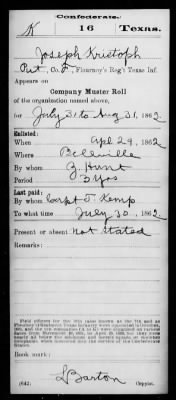 Confederate.
K 16 Texas.
Joseph Kristoph
Pvt, Co. F, Flournoy's Reg't Texas Inf.
Appears on
Company Muster Roll
of the organization named above,
for July 3 to Aug 31, 1862
Enlisted:
When Apl 29, 1862
Where Bellville
By whom Z. Hunt
Period 3 Yrs
Last paid:
By whom Capt J. Kemp
To what time July 30, 1862
Present or absent not stated
Remarks:
Book mark:
L Barton
(642) Copyist.